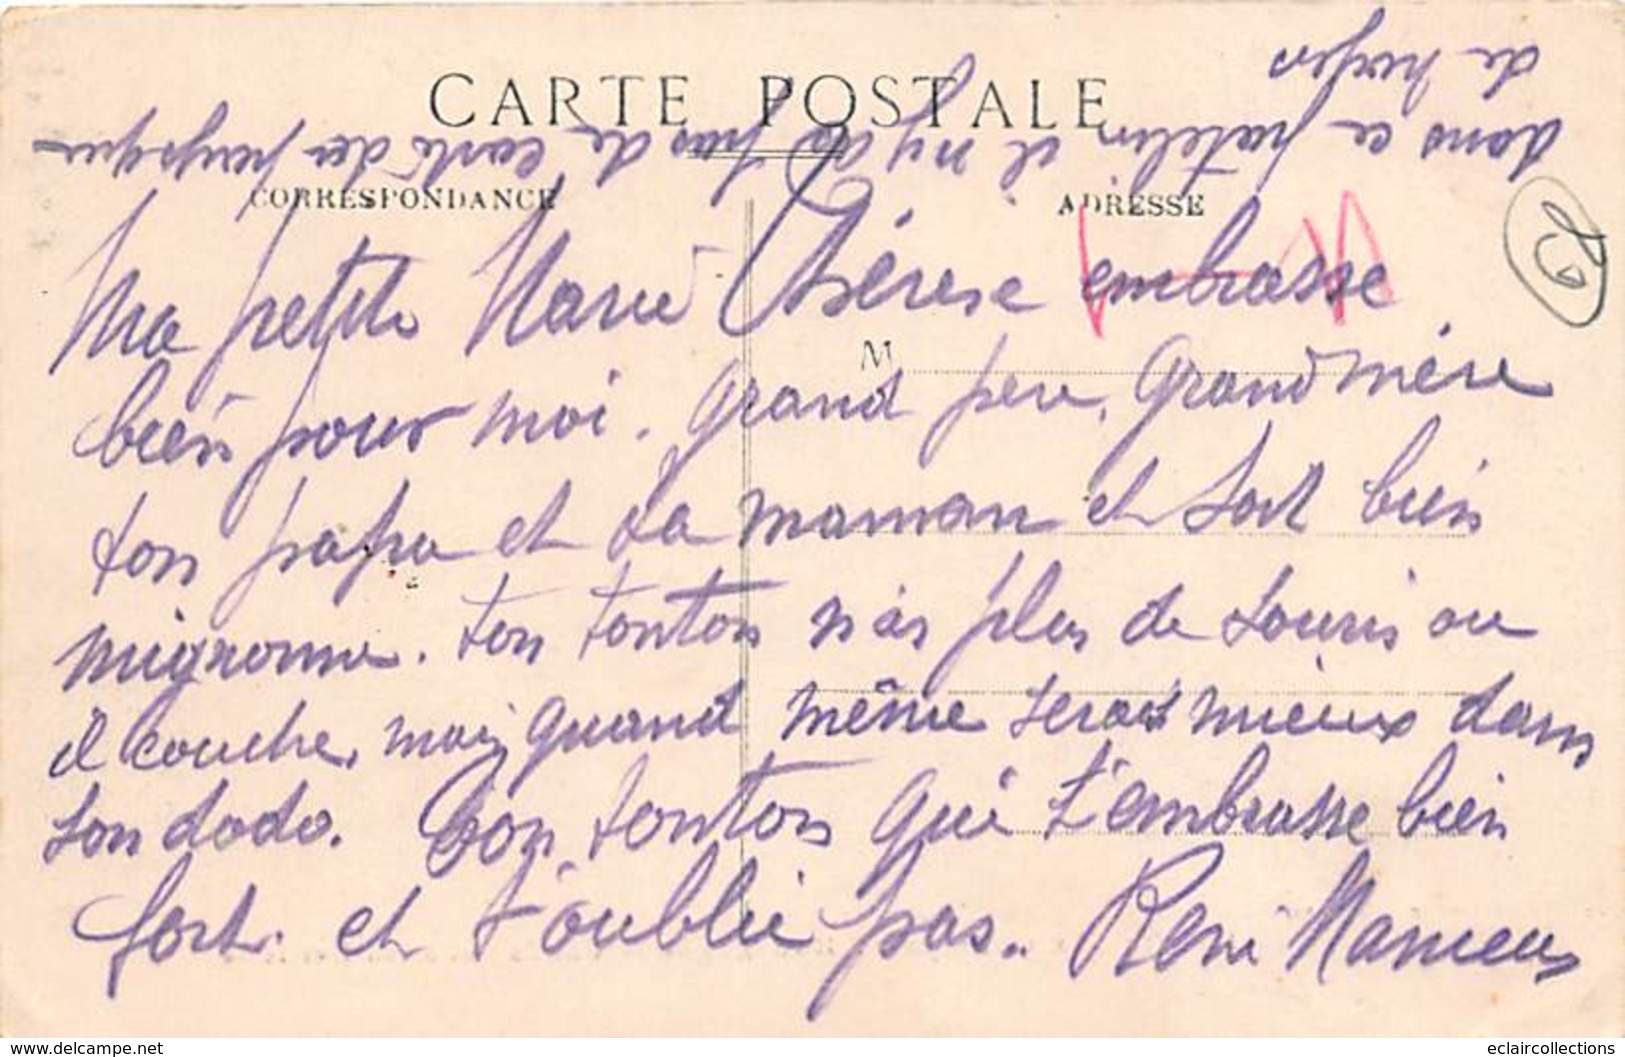 CARTE POSTALE
CORRESPONDANCE
ADRESSE
M
dans ce patelin il n'y a pas de carte des paysages
Ma petite Marie Thérèse embrasse
bien pour moi. grand père, Grand mère
ton papa et ta maman et soit bien
mignonne. ton tonton n'as plus de souris ou
il couche, mais quand même serais mieux dans
son dodo. Bon tonton qui t'embrasse bien
fort. et t'oublie pas.. René
www.delcampe.net
eclaircollections